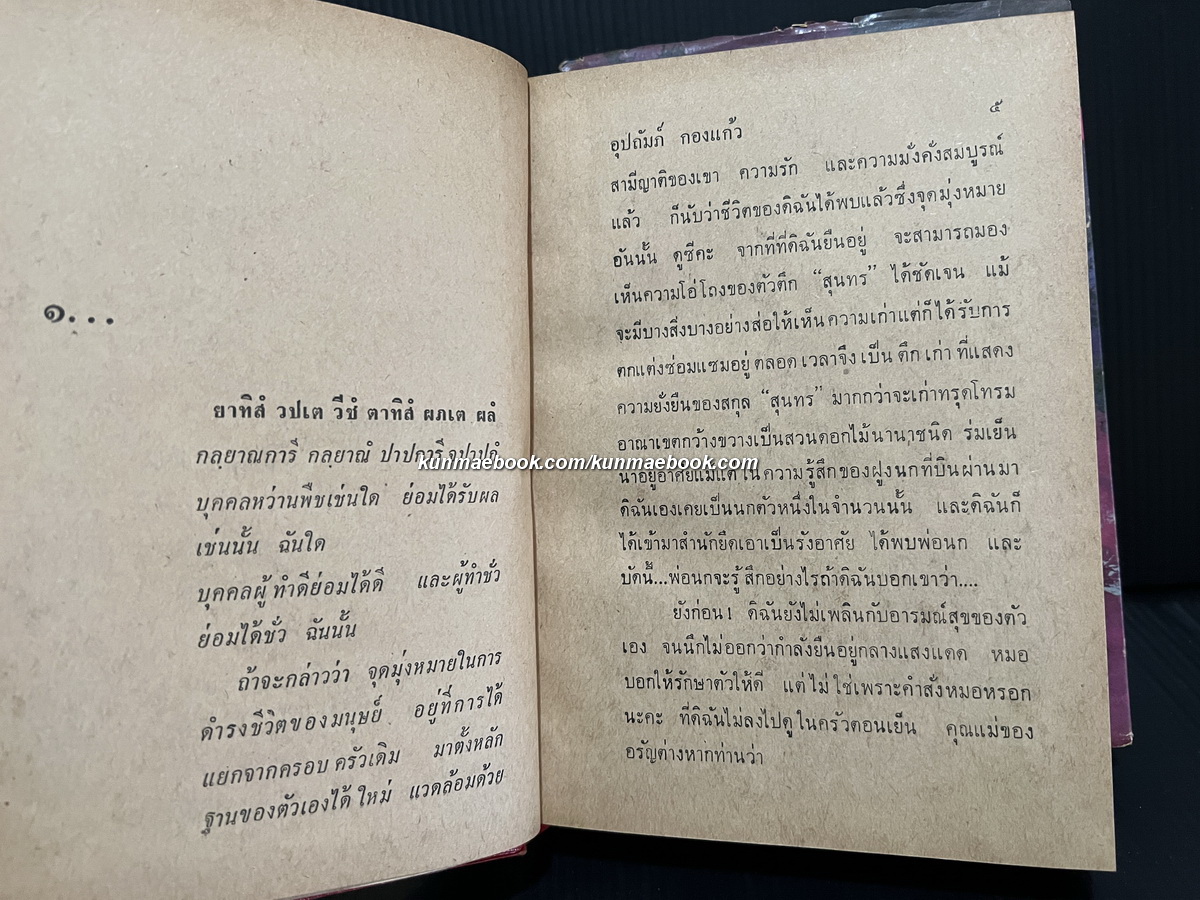 ๑...
ยาทิสํ วปเต วีชํ ตาทิสํ ผภเต ผลํ
กลฺยาณการี กลฺยาณํ ปาปการี จ ปาปกํ
บุคคลหว่านพืชเช่นใด ย่อมได้รับผล
เช่นนั้น ฉันใด
บุคคลผู้ทำดีย่อมได้ดี และผู้ทำชั่ว
ย่อมได้ชั่ว ฉันนั้น
ถ้าจะกล่าวว่า จุดมุ่งหมายในการ
ดำรงชีวิตของมนุษย์ อยู่ที่การได้
แยกจากครอบครัวเดิม มาตั้งหลัก
ฐานของตัวเองได้ใหม่ แวดล้อมด้วย
๕
อุปถัมภ์ กองแก้ว
สามีญาติของเขา ความรัก และความมั่งคั่งสมบูรณ์
แล้ว ก็นับว่าชีวิตของดิฉันได้พบแล้วซึ่งจุดมุ่งหมาย
อันนั้น ดูซีคะ จากที่ที่ดิฉันยืนอยู่ จะสามารถมอง
เห็นความโอ่โถงของตัวตึก “สุนทร” ได้ชัดเจน แม้
จะมีบางสิ่งบางอย่างส่อให้เห็นความเก่าแต่ก็ได้รับการ
ตกแต่งซ่อมแซมอยู่ตลอดเวลาจึงเป็นตึกเก่าที่แสดง
ความยั่งยืนของสกุล “สุนทร” มากกว่าจะเก่าทรุดโทรม
อาณาเขตกว้างขวางเป็นสวนดอกไม้นานาชนิด ร่มเย็น
น่าอยู่อาศัยแม้แต่ในความรู้สึกของฝูงนกที่บินผ่านมา
ดิฉันเองเคยเป็นนกตัวหนึ่งในจำนวนนั้น และดิฉันก็
ได้เข้ามาสำนักยึดเอาเป็นรังอาศัย ได้พบพ่อนก และ
บัดนี้...พ่อนกจะรู้สึกอย่างไรถ้าดิฉันบอกเขาว่า....
ยังก่อน! ดิฉันยังไม่เพลินกับอารมณ์สุขของตัว
เอง จนนึกไม่ออกว่ากำลังยืนอยู่กลางแสงแดด หมอ
บอกให้รักษาตัวให้ดี แต่ไม่ใช่เพราะคำสั่งหมอหรอก
นะคะ ที่ดิฉันไม่ลงไปดูในครัวตอนเย็น คุณแม่ของ
อรัญต่างหากท่านว่า
kunmaebook.com/kunmaebook.com